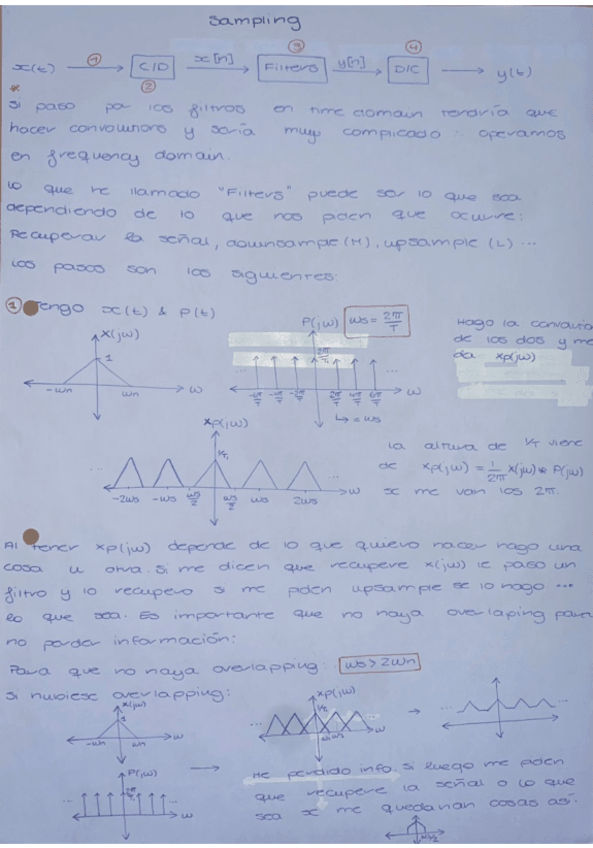 Sampling
① ③ ④
x(t) → C/D x[n] → Filters y[n] → D/C → y(t)
* ②
Si paso por los filtros en time domain tendría que
hacer convolutions y sería muy complicado ∴ operamos
en frequency domain.
Lo que he llamado "Filters" puede ser lo que sea
dependiendo de lo que nos piden que ocurre:
Recuperar la señal, downsample (M), upsample (L) ...
Los pasos son los siguientes:
① Tengo x(t) & P(t)
X(jω)
1
-ωn ωn ω
P(jω) ωs = 2π/T
2π/T
... -6π/T -4π/T -2π/T 2π/T 4π/T 6π/T ... ω
↳ = ωs
Hago la
de los dos y me
da xp(jω)
xp(jω)
1/T
... -2ωs -ωs ωs/2 ωs/2 ωs 2ωs ... ω
La altura de 1/T viene
de xp(jω) = 1/2π x(jω) * P(jω)
se me van los 2π.
Al tener xp(jω) depende de lo que quiero hacer hago una
cosa u otra. Si me dicen que recupere x(jω) le paso un
filtro y lo recupero si me piden upsample se lo hago ...
lo que sea. Es importante que no haya overlaping para
no perder información:
Para que no haya overlapping: ωs > 2ωn
Si hubiese overlapping:
x(jω)
1
-ωn ωn ω
xp(jω)
1/T
... ... ω
→
... ...
P(jω)
2π/T
... ... ω
→
He perdido info. Si luego me piden
que recupere la señal o lo que
sea se me quedarían cosas así: